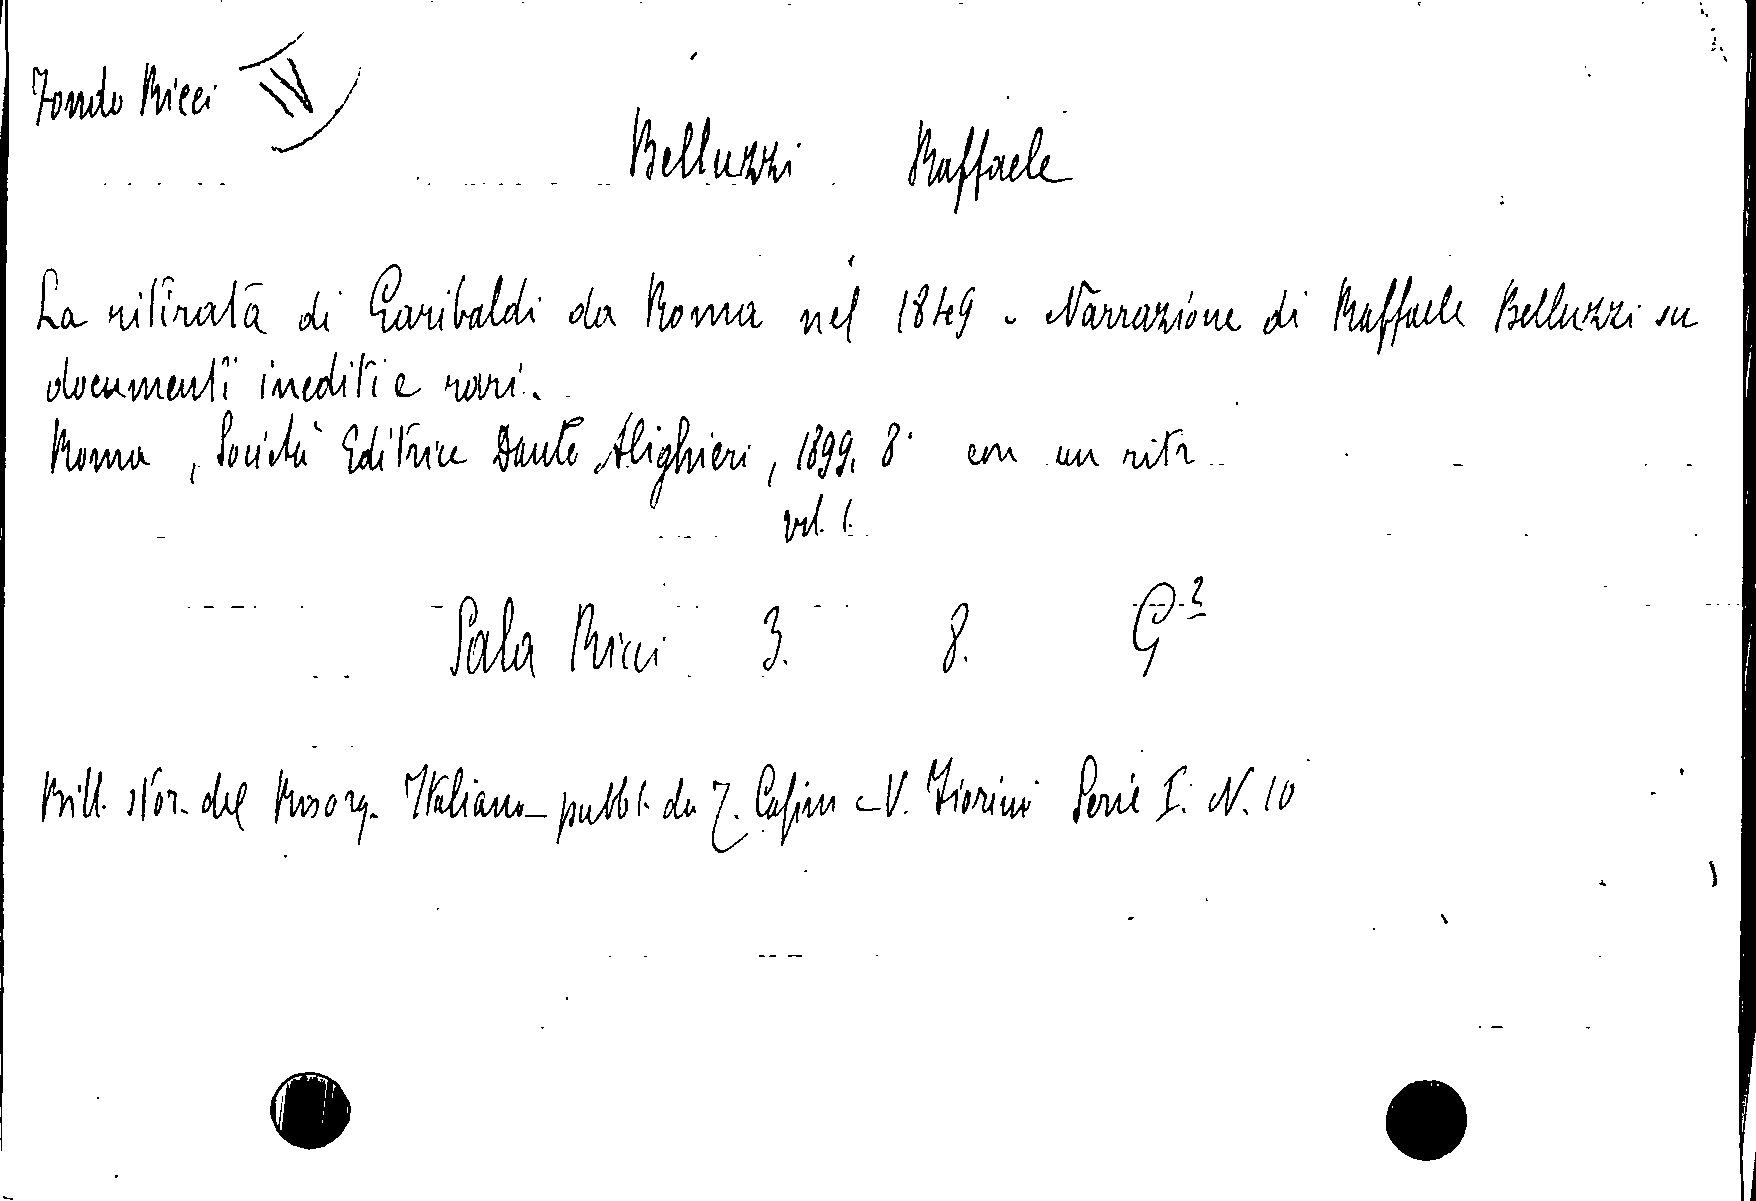 Fondo Ricci IV
Belluzzi Raffaele
La ritirata di Garibaldi da Roma nel 1849 - Narrazione di Raffaele Belluzzi su
documenti inediti e rari.
Roma, Società Editrice Dante Alighieri, 1899. 8° con un ritr
vol. 1.
Sala Ricci 3. 8. G³
Bill. stor. del Risorg. Italiano - pubbl. da T. Casini e V. Fiorini Serie I. N. 10